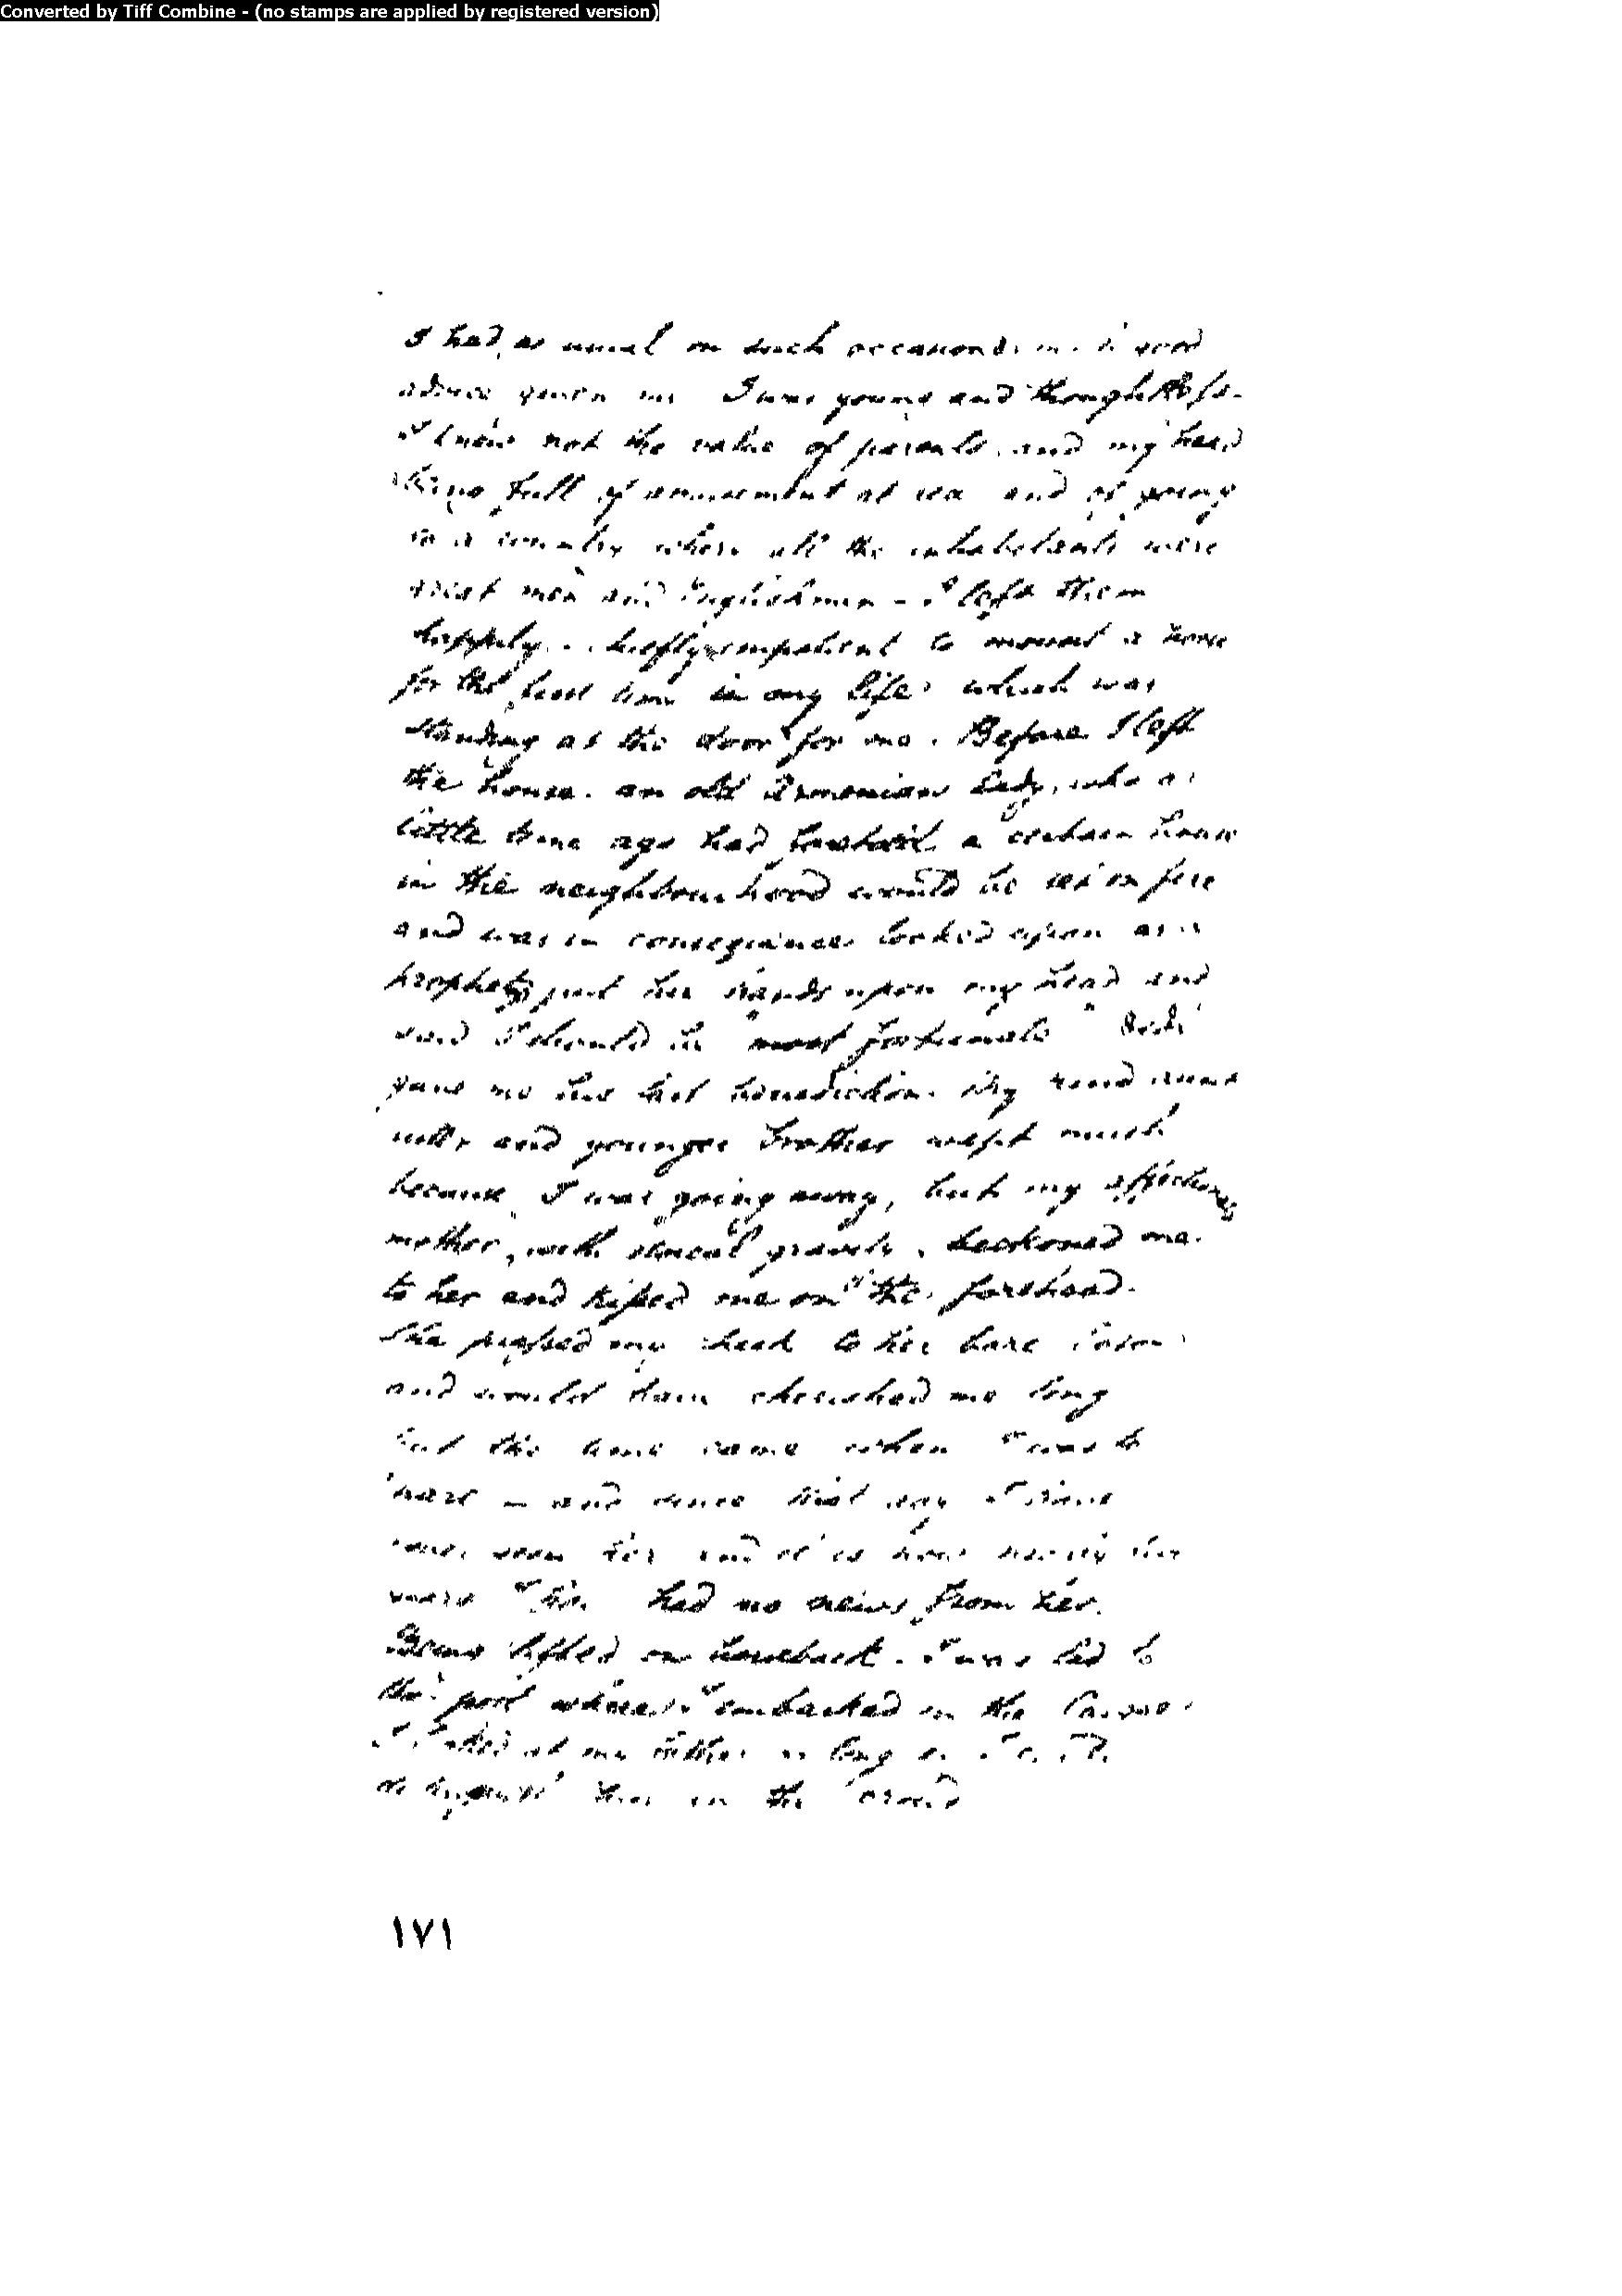 Converted by Tiff Combine - (no stamps are applied by registered version)
I had, as usual on such occasions, much good
advice given me I was young and thoughtless.
I knew not the value of parents, and my head
being full of amusement at sea and of going
to a country where all the inhabitants were
great men and Englishmen - I left them
happily, impatient to mount a horse
for the first time in my life, which was
standing at the door for me. Before I left
the house, an old Armenian Lady, who a
little time ago had a certain house
in the neighbourhood would be set on fire
and was in consequence looked upon as a
prophet, put her hands upon my head and
said I should be most fortunate
gave me her best benediction. My
and younger brother wept much
because I was going away, but my affectionate
mother, with gravity, beckoned me
to her and kissed me on the forehead.
She pressed my cheek to her bare
and would have cherished me long
but the time came when I was to
and since that day I
seen her and it is now nearly
years I had no news from her.
Being lifted on horseback, I was led to
the port where I embarked in the
I looked at my father as long as I could
in the crowd
١٧١